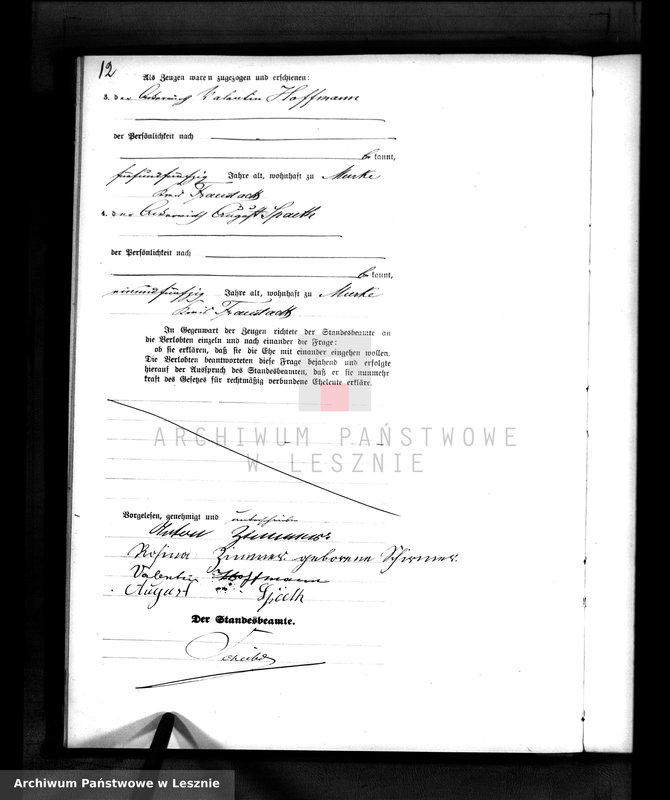 12
Als Zeugen waren zugezogen und erschienen:
3. der Valentin Hoffmann
der Persönlichkeit nach
be kannt,
fünfundfünfzig Jahre alt, wohnhaft zu Murke
Kreis Fraustadt
4. der August Spaeth
der Persönlichkeit nach
be kannt,
einundfünfzig Jahre alt, wohnhaft zu Murke
Kreis Fraustadt
In Gegenwart der Zeugen richtete der Standesbeamte an
die Verlobten einzeln und nach einander die Frage:
ob sie erklären, daß sie die Ehe mit einander eingehen wollen.
Die Verlobten beantworteten diese Frage bejahend und erfolgte
hierauf der Ausspruch des Standesbeamten, daß er sie nunmehr
kraft des Gesetzes für rechtmäßig verbundene Eheleute erkläre.
ARCHIWUM PAŃSTWOWE
W LESZNIE
Vorgelesen, genehmigt und unterschrieben
Anton Zimmer
Rosina Zimmer geborene Schirmer.
Valentin Hoffmann
August Späth
Der Standesbeamte.
Archiwum Państwowe w Lesznie